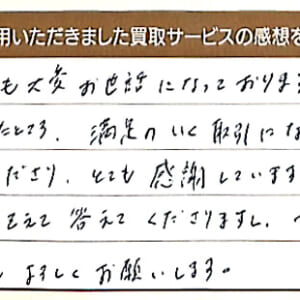 用いただきました買取サービスの感想を
も大変お世話になっておりま
たところ、満足のいく取引にな
ださり、とても感謝しています
答えてくださりますし、
よろしくお願いします。